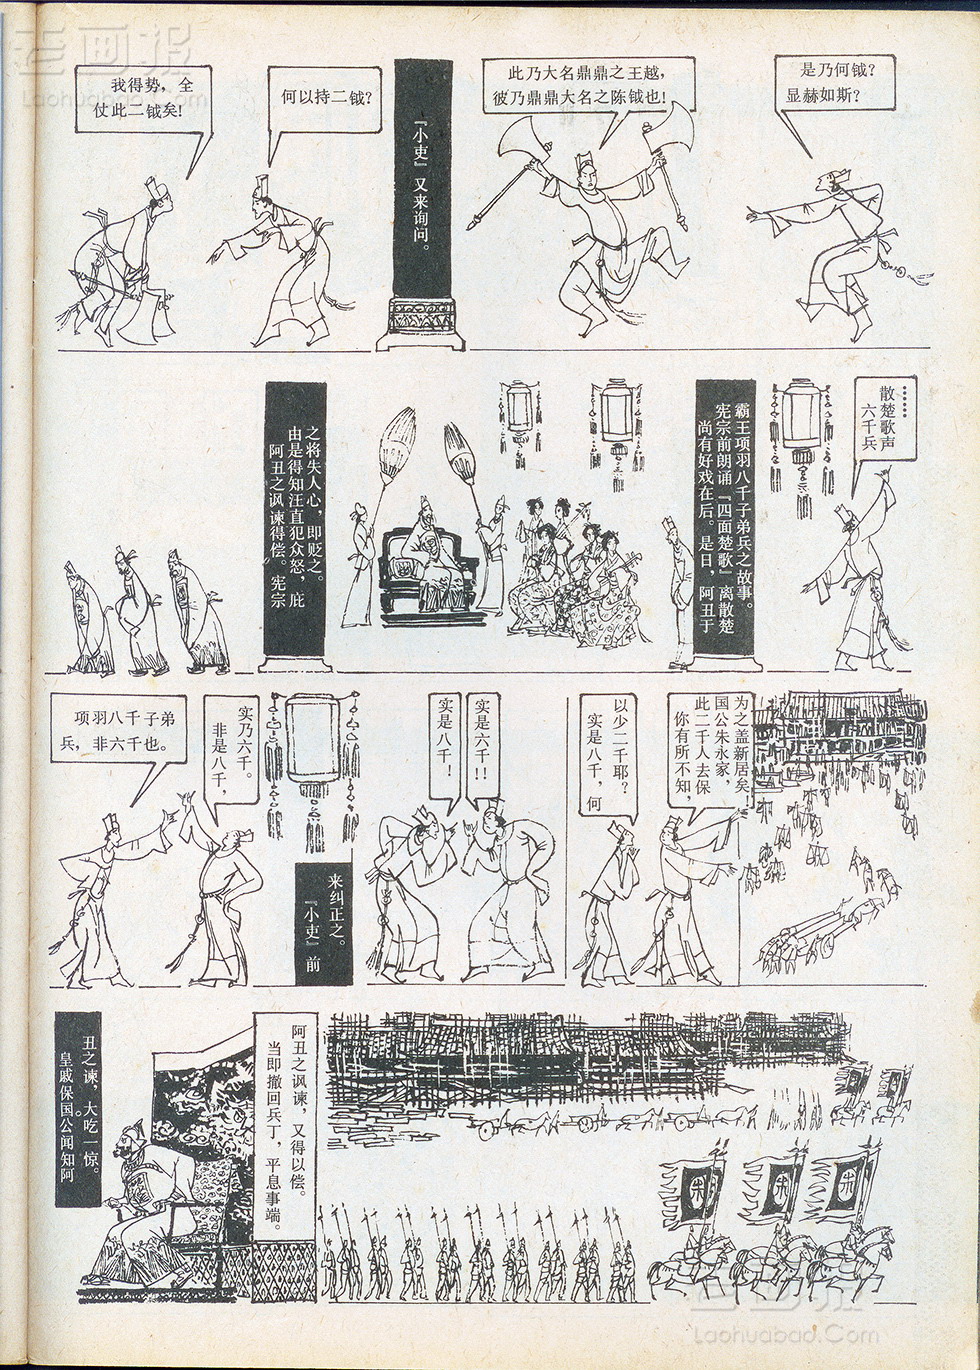 我得势，全
仗此二钺矣!
何以持二钺?
『小吏』又来询问。
此乃大名鼎鼎之王越，
彼乃鼎鼎大名之陈钺也!
是乃何钺?
显赫如斯?
阿丑之讽谏得偿。宪宗
由是得知汪直犯众怒，庇
之将失人心，即贬之。
尚有好戏在后。是日，阿丑于
宪宗前朗诵『四面楚歌』离散楚
霸王项羽八千子弟兵之故事。
六千兵
散楚歌声
……
项羽八千子弟
兵，非六千也。
非是八千，
实乃六千。
『小吏』前
来纠正之。
实是八千!
实是六千!!
实是八千，何
以少二千耶?
你有所不知，
此二千人去保
国公朱永家，
为之盖新居矣!
皇戚保国公闻知阿
丑之谏，大吃一惊。
当即撤回兵丁，平息事端。
阿丑之讽谏，又得以偿。
朱
朱
朱
老画报
Laohuabao.Com
老画报
Laohuabao.Com